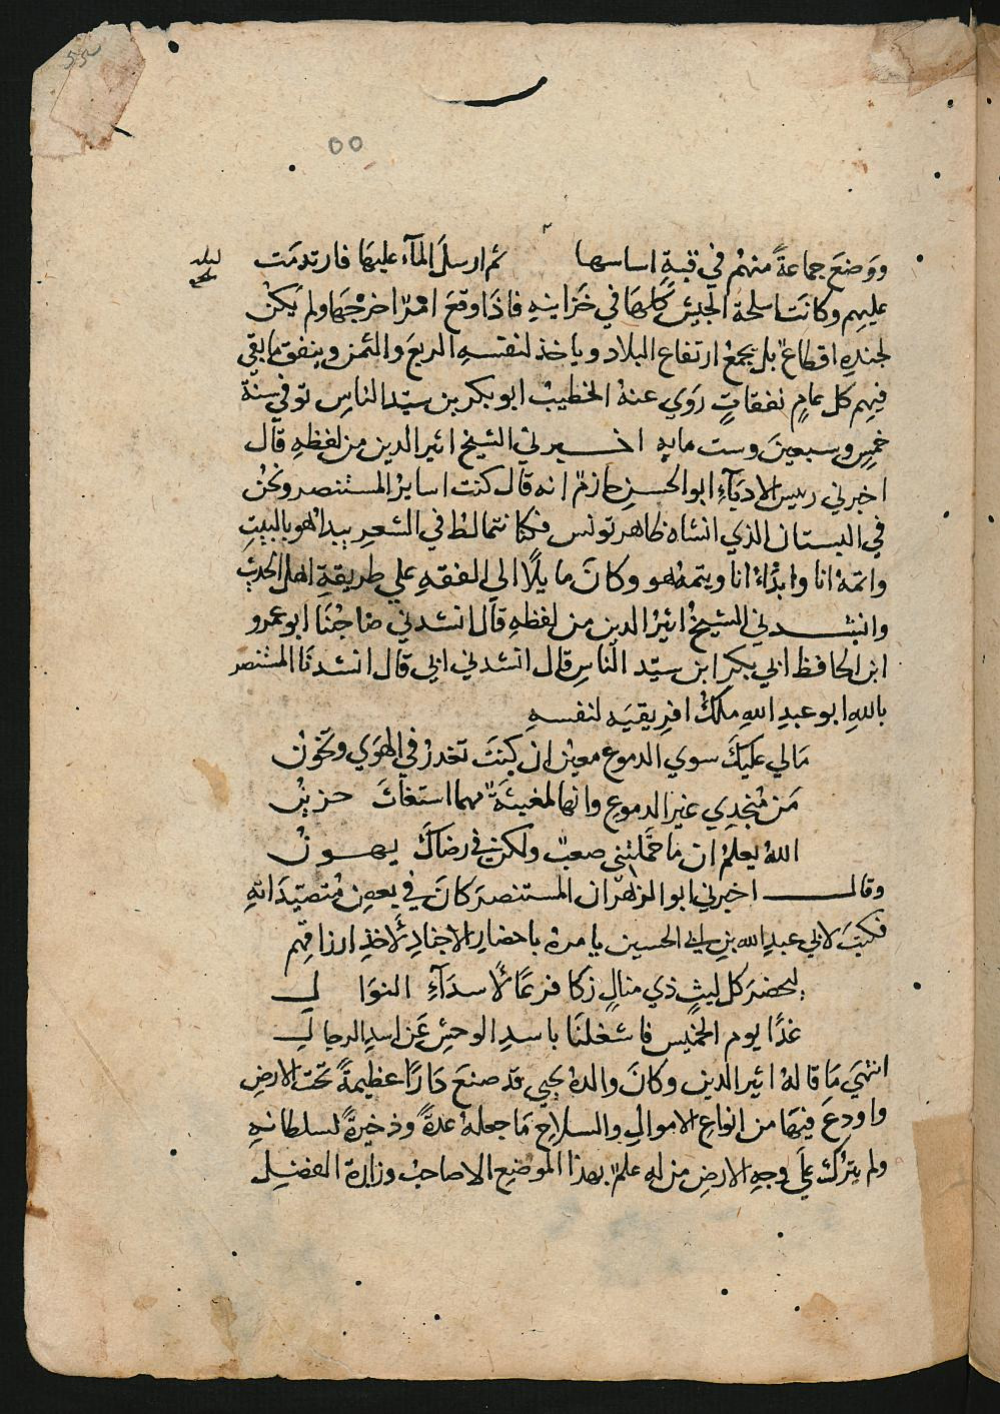 ٥٥
ووضعَ جماعةً منهُم في قبةٍ اساسها ثم ارسلَ المآء عليهَا فارتدمَت
عليهِم وكانَت اسلحة الجيش كلهَا في خزاينهِ فاذَا وقعَ امرٌ اخرجهَا ولم يكنْ
لجندهِ اقطاعٌ بل يجمعُ ارتفاع البلاد وياخذ لنفسهِ الربعَ والثمن وينفق ما بقي
فيهِم كل عامٍ نفقاتٍ روَي عنهُ الخطيبُ ابو بكر بن سيّد الناسِ توفي سنةَ
خمسٍ وسبعينَ وست مايهٍ اخبرني الشيخ اثير الدين من لفظهِ قال
اخبرني رييس الادبَآءِ ابو الحسنِ حازمٌ انه قال كنت اسايرُ المستنصر ونحنُ
في البستان الذي انشاه ظاهر تونس فكنا نتمالط في الشعرِ يبدا هو بالبيتِ
واتمهُ انا وابدَاءُ انا ويتمهُ هو وكانَ مايلًا الي الفقهِ علي طريقةِ اهل الحديث
وانشدني الشيخُ اثيرُ الدين من لفظهِ قال انشدني صاحبُنَا ابو عمرو
ابن الحافظ ابي بكرِ ابن سيّد الناسِ قال انشدني ابي قال انشدنَا المستنصر
باللهِ ابو عبدِ اللهِ ملكُ افرِيقيَه لنفسهِ
مَالي عليكَ سوي الدموع معينُ ان كنتَ تغدرُ في الهوَي وتخونُ
مَن مُنجدِي غيرُ الدموعِ وانها لمغيثَةٌ مهما استغاثَ حزينُ
اللهُ يعلمُ ان ما حمَّلتني صعبٌ ولكن في رضاكَ يهونُ
وقال اخبرني ابو الزهر ان المستنصرَ كانَ في بعضِ متصيّدَاتهِ
فكتبَ لابي عبدِ الله بنِ ابي الحسين يامرهُ باحضارِ الاجنادِ لاخذِ ارزاقِهِم
ليحضرَ كل ليثٍ ذي منالٍ زكا فرعًا لأسدَآءِ النوَالي
غدًا يوم الخميس فاشغلنَا باسدِ الوحشِ عَن اسدِ الرجالي
انتهيَ مَا قالهُ اثير الدين وكانَ والدهُ يحيي قد صنعَ دَارًا عظيمةً تحتَ الارضِ
واودعَ فيهَا من انواعِ الاموالِ والسلاحِ مَا جعلهُ عدةً وذخيرةً لسلطانهِ
ولم يترك علَي وجهِ الارضِ من له علمٌ بهذا الموضعِ الا صاحبُ وزارةِ الفضلِ